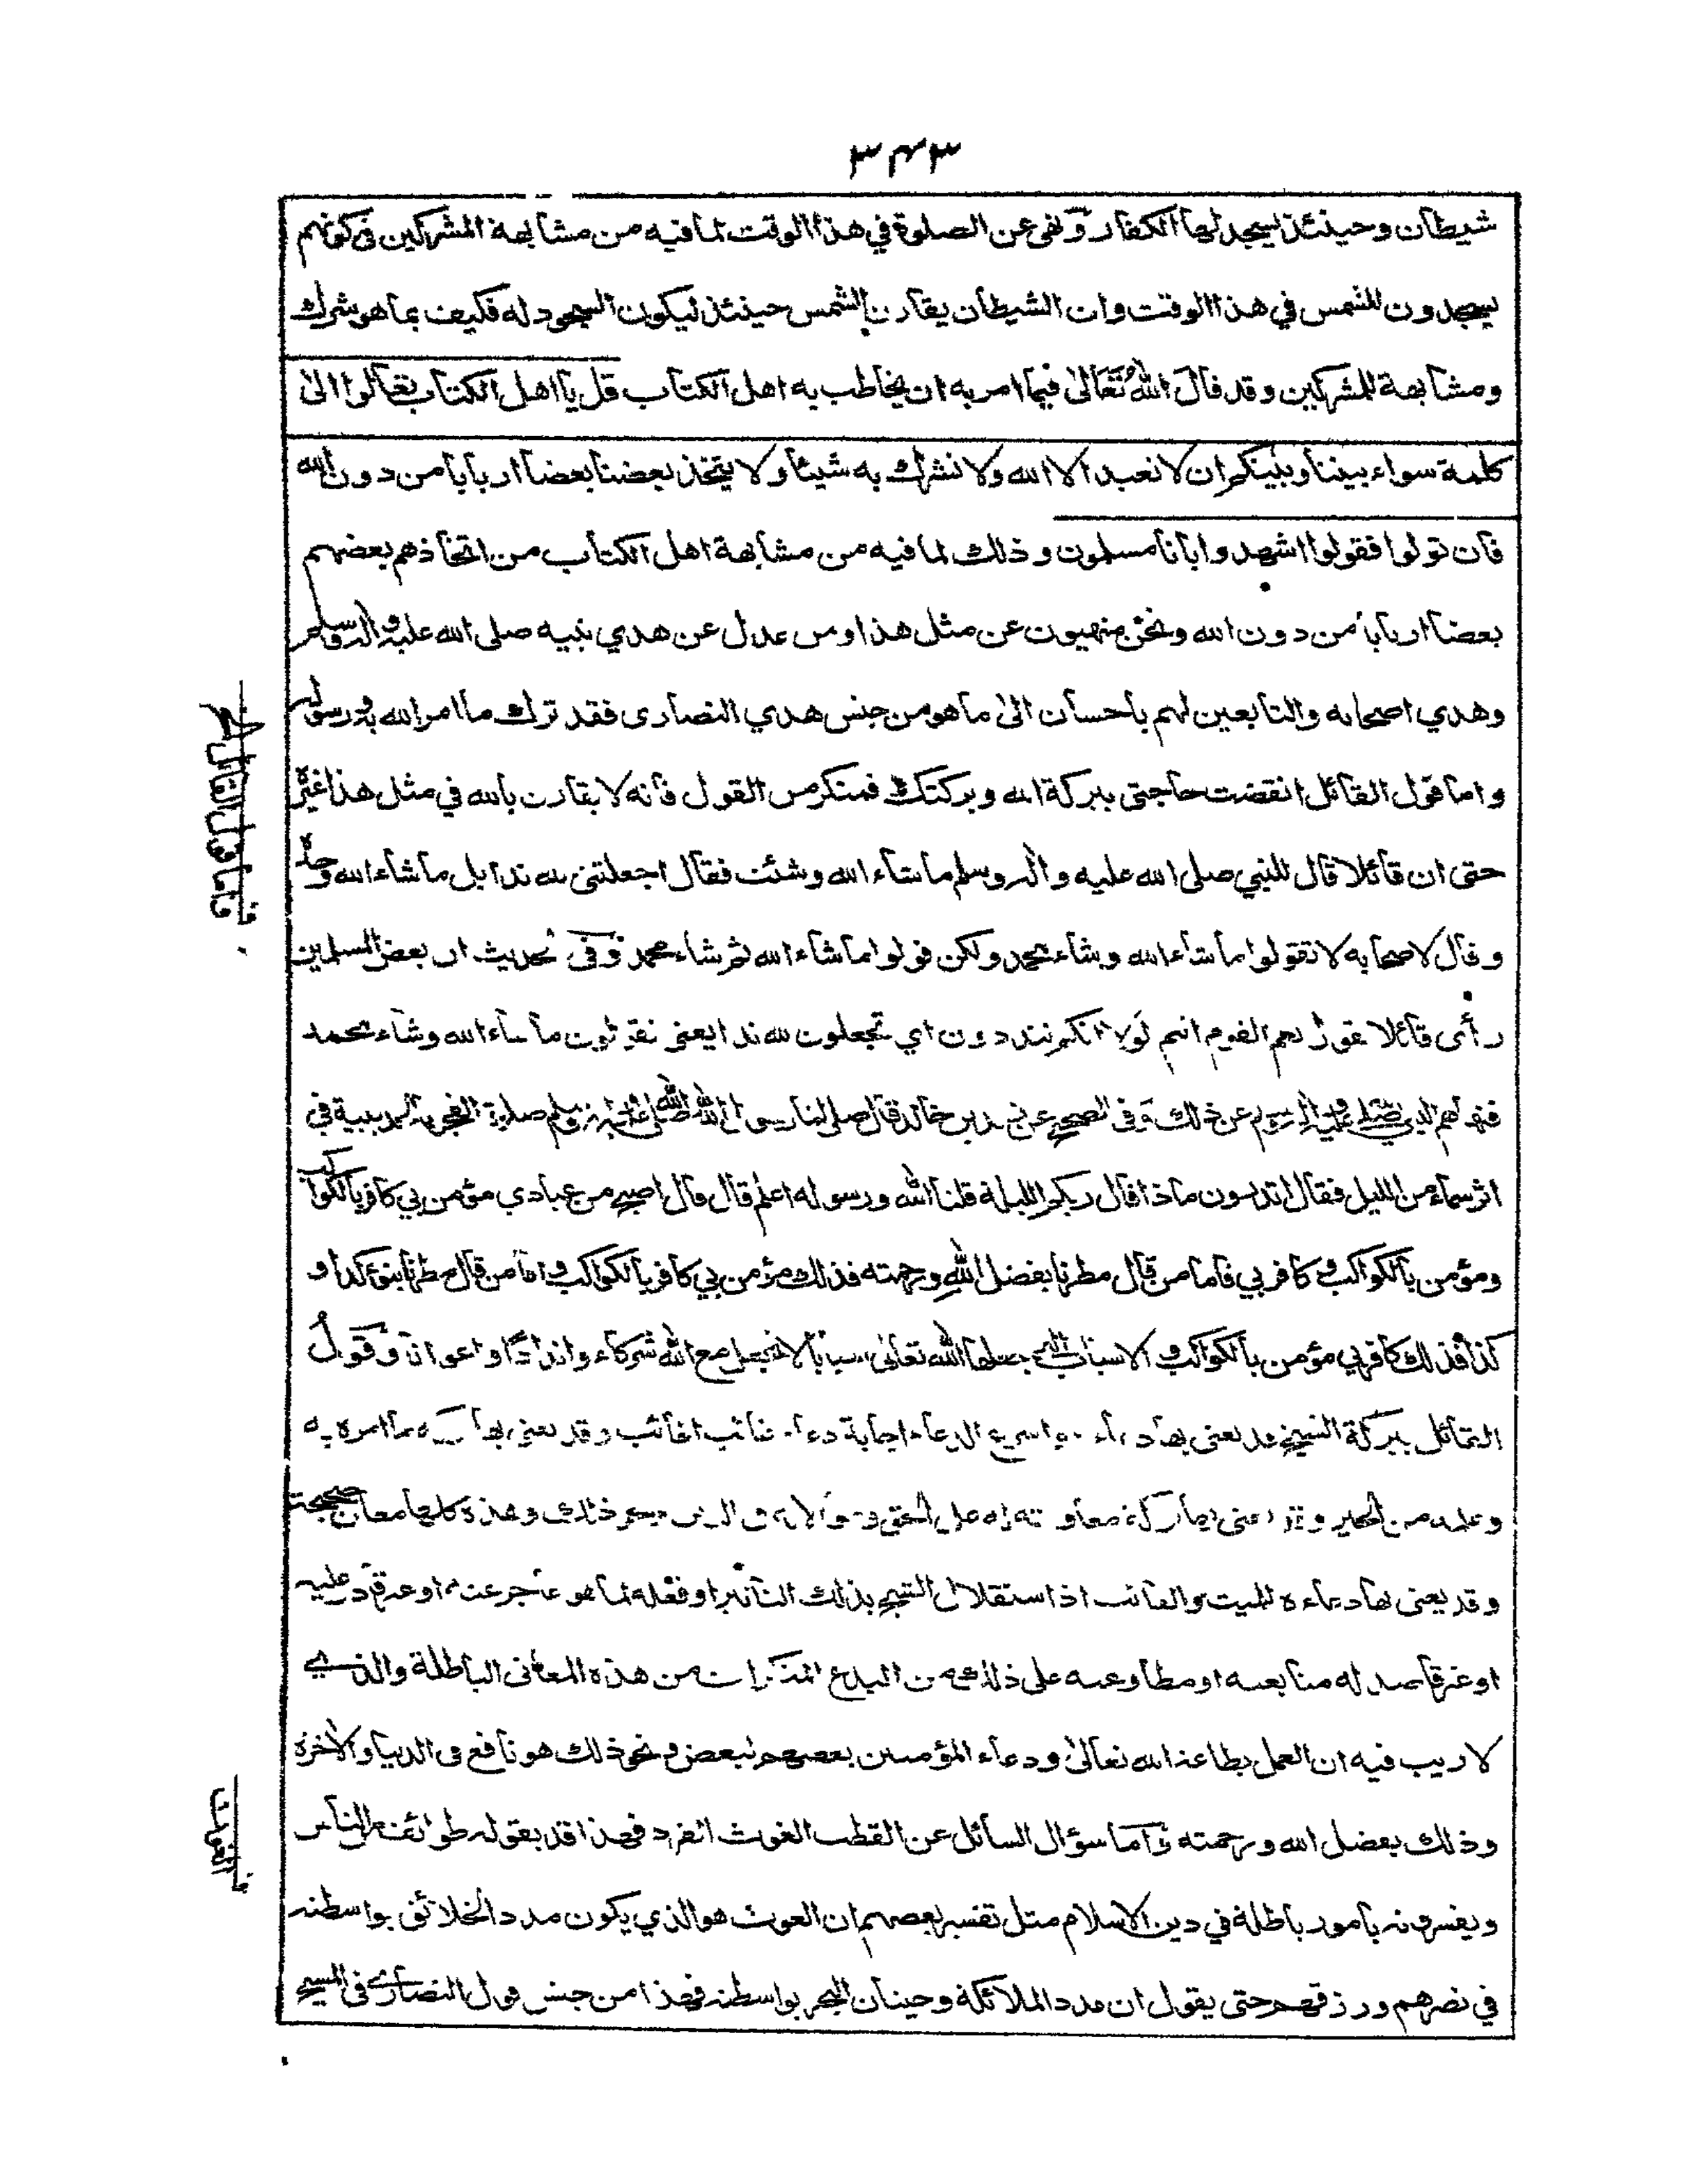 ٣٤٣
شيطان وحينئذ يسجد لها الكفار ونهى عن الصلوة في هذا الوقت لما فيه من مشابهة المشركين في كونهم
يسجدون للشمس في هذا الوقت وان الشيطان يقارن الشمس حينئذ ليكون السجود له فكيف بما هو شرك
ومشابهة للمشركين وقد قال الله تعالى فيما امر به ان يخاطب به اهل الكتاب قل يا اهل الكتاب تعالوا الى
كلمة سواء بيننا وبينكم ان لا نعبد الا الله ولا نشرك به شيئا ولا يتخذ بعضنا بعضا اربابا من دون الله
فان تولوا فقولوا اشهدوا بانا مسلمون وذلك لما فيه من مشابهة اهل الكتاب من اتخاذهم بعضهم
بعضا اربابا من دون الله ونحن منهيون عن مثل هذا ومن عدل عن هدي نبيه صلى الله عليه واله وسلم
وهدي اصحابه والتابعين لهم باحسان الى ما هو من جنس هدي النصارى فقد ترك ما امر الله به ورسوله
واما قول القائل انقضت حاجتي ببركة الله وبركتك فمنكر من القول فانه لا يقارن بالله في مثل هذا غيره
حتى ان قائلا قال للنبي صلى الله عليه واله وسلم ما شاء الله وشئت فقال اجعلتني لله ندا بل ما شاء الله وحده
وقال لاصحابه لا تقولوا ما شاء الله وشاء محمد ولكن قولوا ما شاء الله ثم شاء محمد وفي حديث ان بعض المسلمين
رأى قائلا يقول نعم القوم انتم لولا انكم تنددون اي تجعلون لله ندا يعني تقولون ما شاء الله وشاء محمد
فنهاهم النبي صلى الله عليه واله وسلم عن ذلك وفي الصحيح عن زيد بن خالد قال صلى لنا رسول الله صلى الله عليه واله وسلم صلوة الفجر بالحديبية في
اثر سماء من الليل فقال اتدرون ماذا قال ربكم الليلة قلنا الله ورسوله اعلم قال قال اصبح من عبادي مؤمن بي كافر بالكواكب
ومؤمن بالكواكب كافر بي فاما من قال مطرنا بفضل الله ورحمته فذلك مؤمن بي كافر بالكواكب واما من قال مطرنا بنوء كذا و
كذا فذلك كافر بي مؤمن بالكواكب والاسباب التي جعلها الله تعالى اسبابا لا تجعل مع الله شركاء واندادا واعوانا وقول
القائل ببركة الشيخ قد يعني بها دعاءه واسرع الدعاء اجابة دعاء غائب لغائب وقد يعني بها بركة ما امره به
وعلمه من الخير وقد يعني بها بركة معاونته له على الحق وموالاته في الدين ونحو ذلك وهذه كلها معان صحيحة
وقد يعني بها دعاءه للميت والغائب اذ استقلال الشيخ بذلك التأثير او فعله لما هو عاجز عنه او غير قادر عليه
او غير قاصد له متابعته او مطاوعته على ذلك من البدع المنكرات من هذه المعاني الباطلة والذي
لا ريب فيه ان العمل بطاعة الله تعالى ودعاء المؤمنين بعضهم لبعض ونحو ذلك هو نافع في الدنيا والاخرة
وذلك بفضل الله ورحمته واما سؤال السائل عن القطب الغوث الفرد فهذا قد يقوله طوائف من الناس
ويفسرونه بامور باطلة في دين الاسلام مثل تفسير بعضهم ان الغوث هو الذي يكون مدد الخلائق بواسطته
في نصرهم ورزقهم حتى يقول ان مدد الملائكة وحيتان البحر بواسطته فهذا من جنس قول النصارى في المسيح
ف الغوث